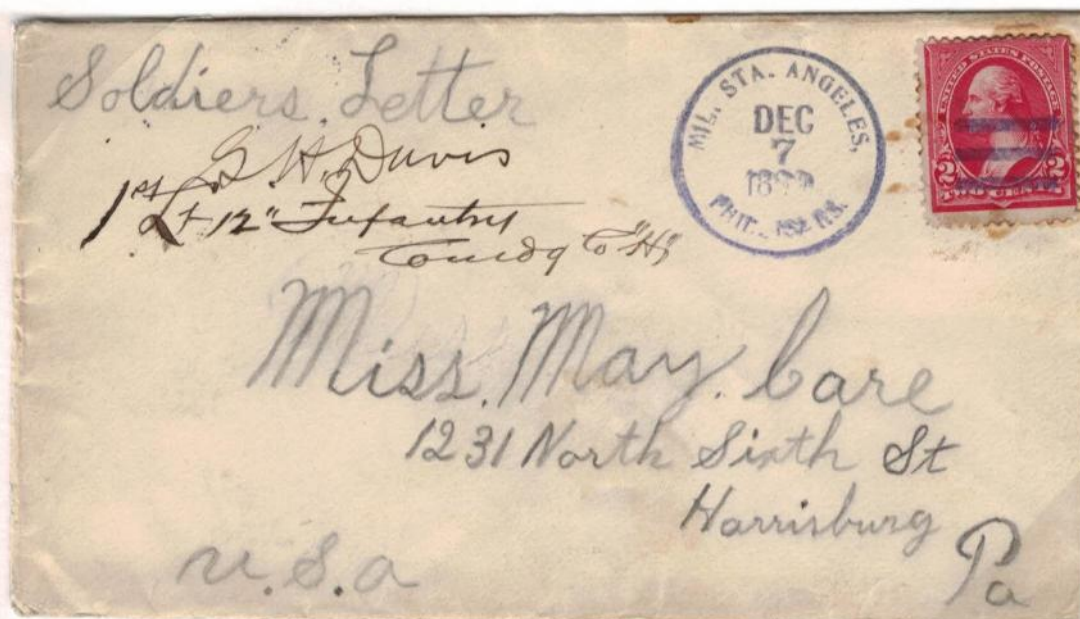 Soldiers. Letter
G. H. Davis
1st Lt 12" Infantry
Comdg Co "H"
MIL. STA. ANGELES,
DEC
7
1899
PHIL. ISLDS.
UNITED STATES POSTAGE
2 2
TWO CENTS
Miss. May. Care
1231 North Sixth St
Harrisburg
Pa
U.S.a